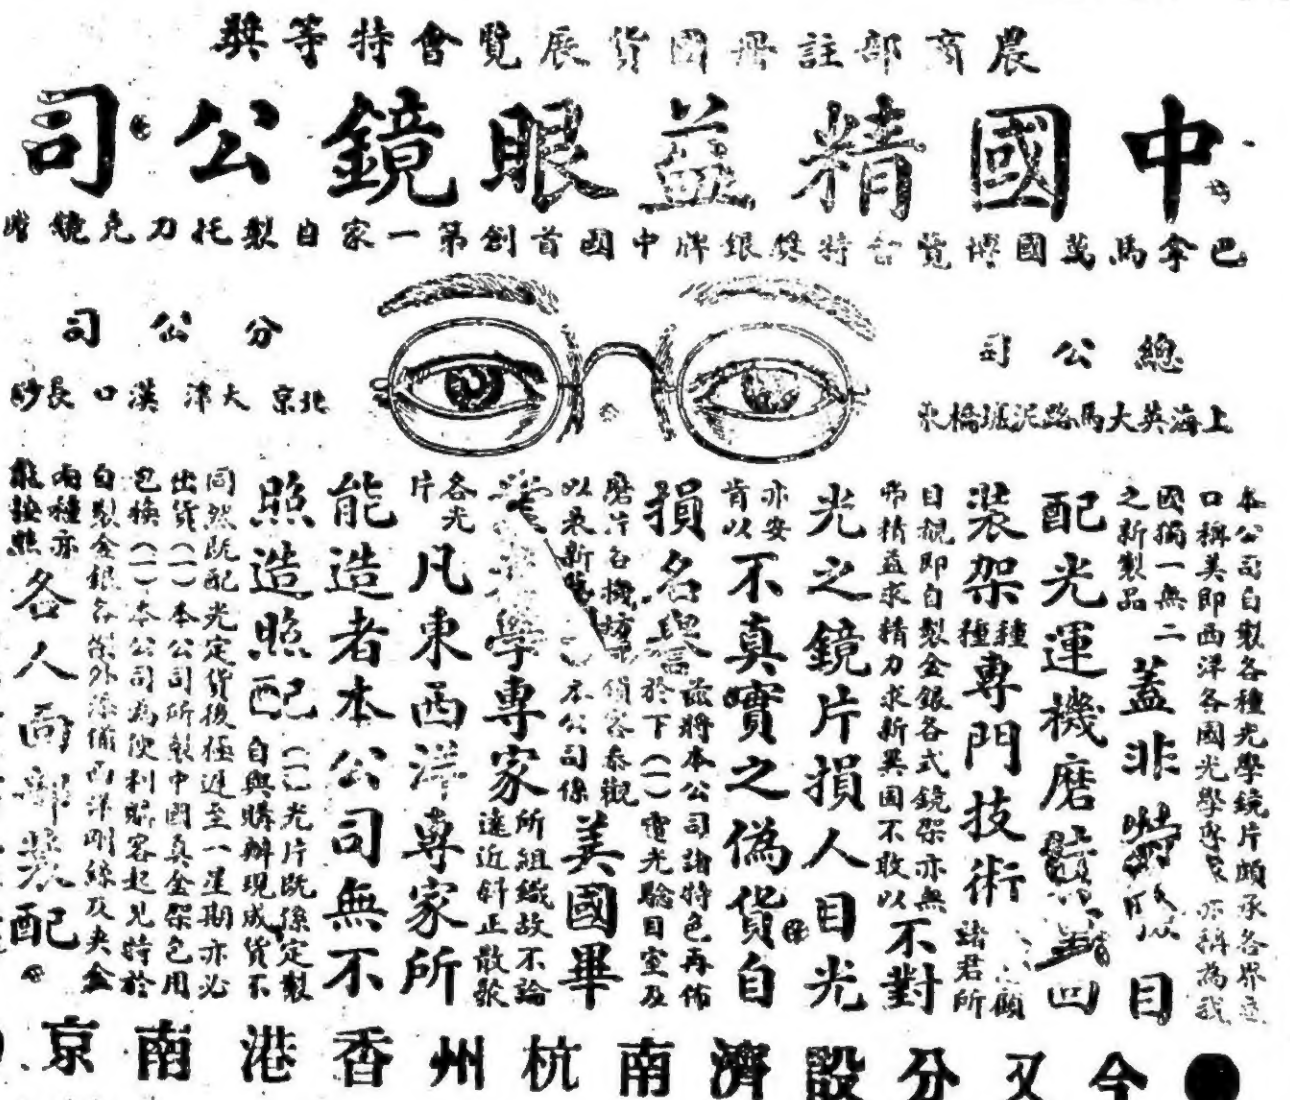 農商部註册國貨展覽會特等獎
中國精益眼鏡公司
巴拿馬萬國博覽會特獎銀牌中國首創第一家自製托力克鏡
總公司
上海英大馬路泥城橋東
分公司
北京 天津 漢口 長沙
本公司自製各種光學鏡片頗承各界
口稱美即西洋各國光學專家亦稱為我
國獨一無二
之新製品
蓋非 目
配光運機磨 四
裝架種種專門技術諸君所 顧
目覩即自製金銀各式鏡架亦無
常精益求精力求新異固不敢以不對
光之鏡片損人目光
亦安
肯以不真實之偽貨自
損名譽茲將本公司諸特色再佈
於下(一)電光驗目室及
磨片各機 顧客泰觀
以表新 本公司係美國畢
業 學專家所組織故不論
遠近斜正散
各光
片凡東西洋專家所
能造者本公司無不
照造照配(一)光片既係定製
自與購辦現成貨不
同然既配光定貨後極遲至一星期亦必
出貨(一)本公司所製中國真金架包用
包換(一)本公司為便利顧客起見特於
自製金銀各架外添備西洋鋼絲及夾金
兩種亦
能按照各人面部裝配
今又分設濟南杭州香港南京